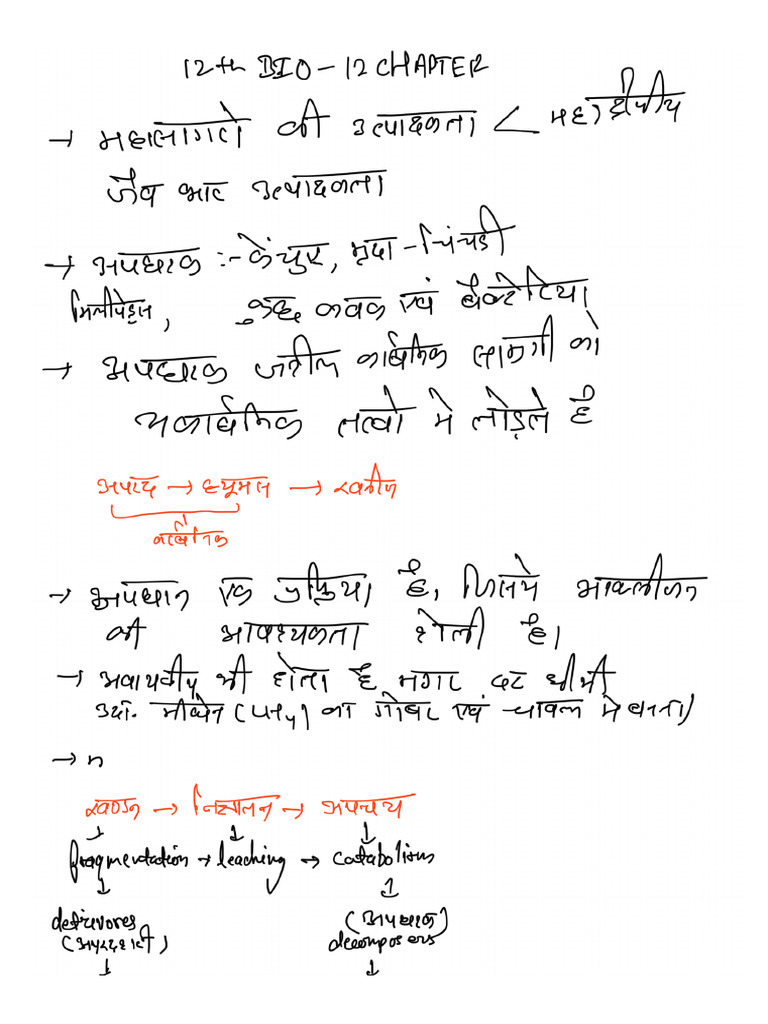 12th BIO - 12 CHAPTER
→ महासागरो की उत्पादकता < महाद्वीपीय
जैव भार उत्पादकता
→ अपघटक :- केंचुए, मृदा - चिंचडी
मिलीपेड्स, कुछ कवक एवं बैक्टेरिया
→ अपघटक जटील कार्बनिक सामग्री को
अकार्बनिक तत्वो मे तोड़ते है
अपरद → ह्यूमस → खनीज
कार्बनिक
→ अपघटन एक प्रक्रिया है, जिसमे आक्सीजन
की आवश्यकता होती है।
→ अवायवीय भी होता है मगर दर धीमी
उदा. मीथेन (CH4) का गोबर एवं चावल मे बनना)
→ n
खण्डन → निक्षालन → अपचय
fragmentation → leaching → catabolism
detrivores
(अपरदहारी)
(अपघटक)
decomposers